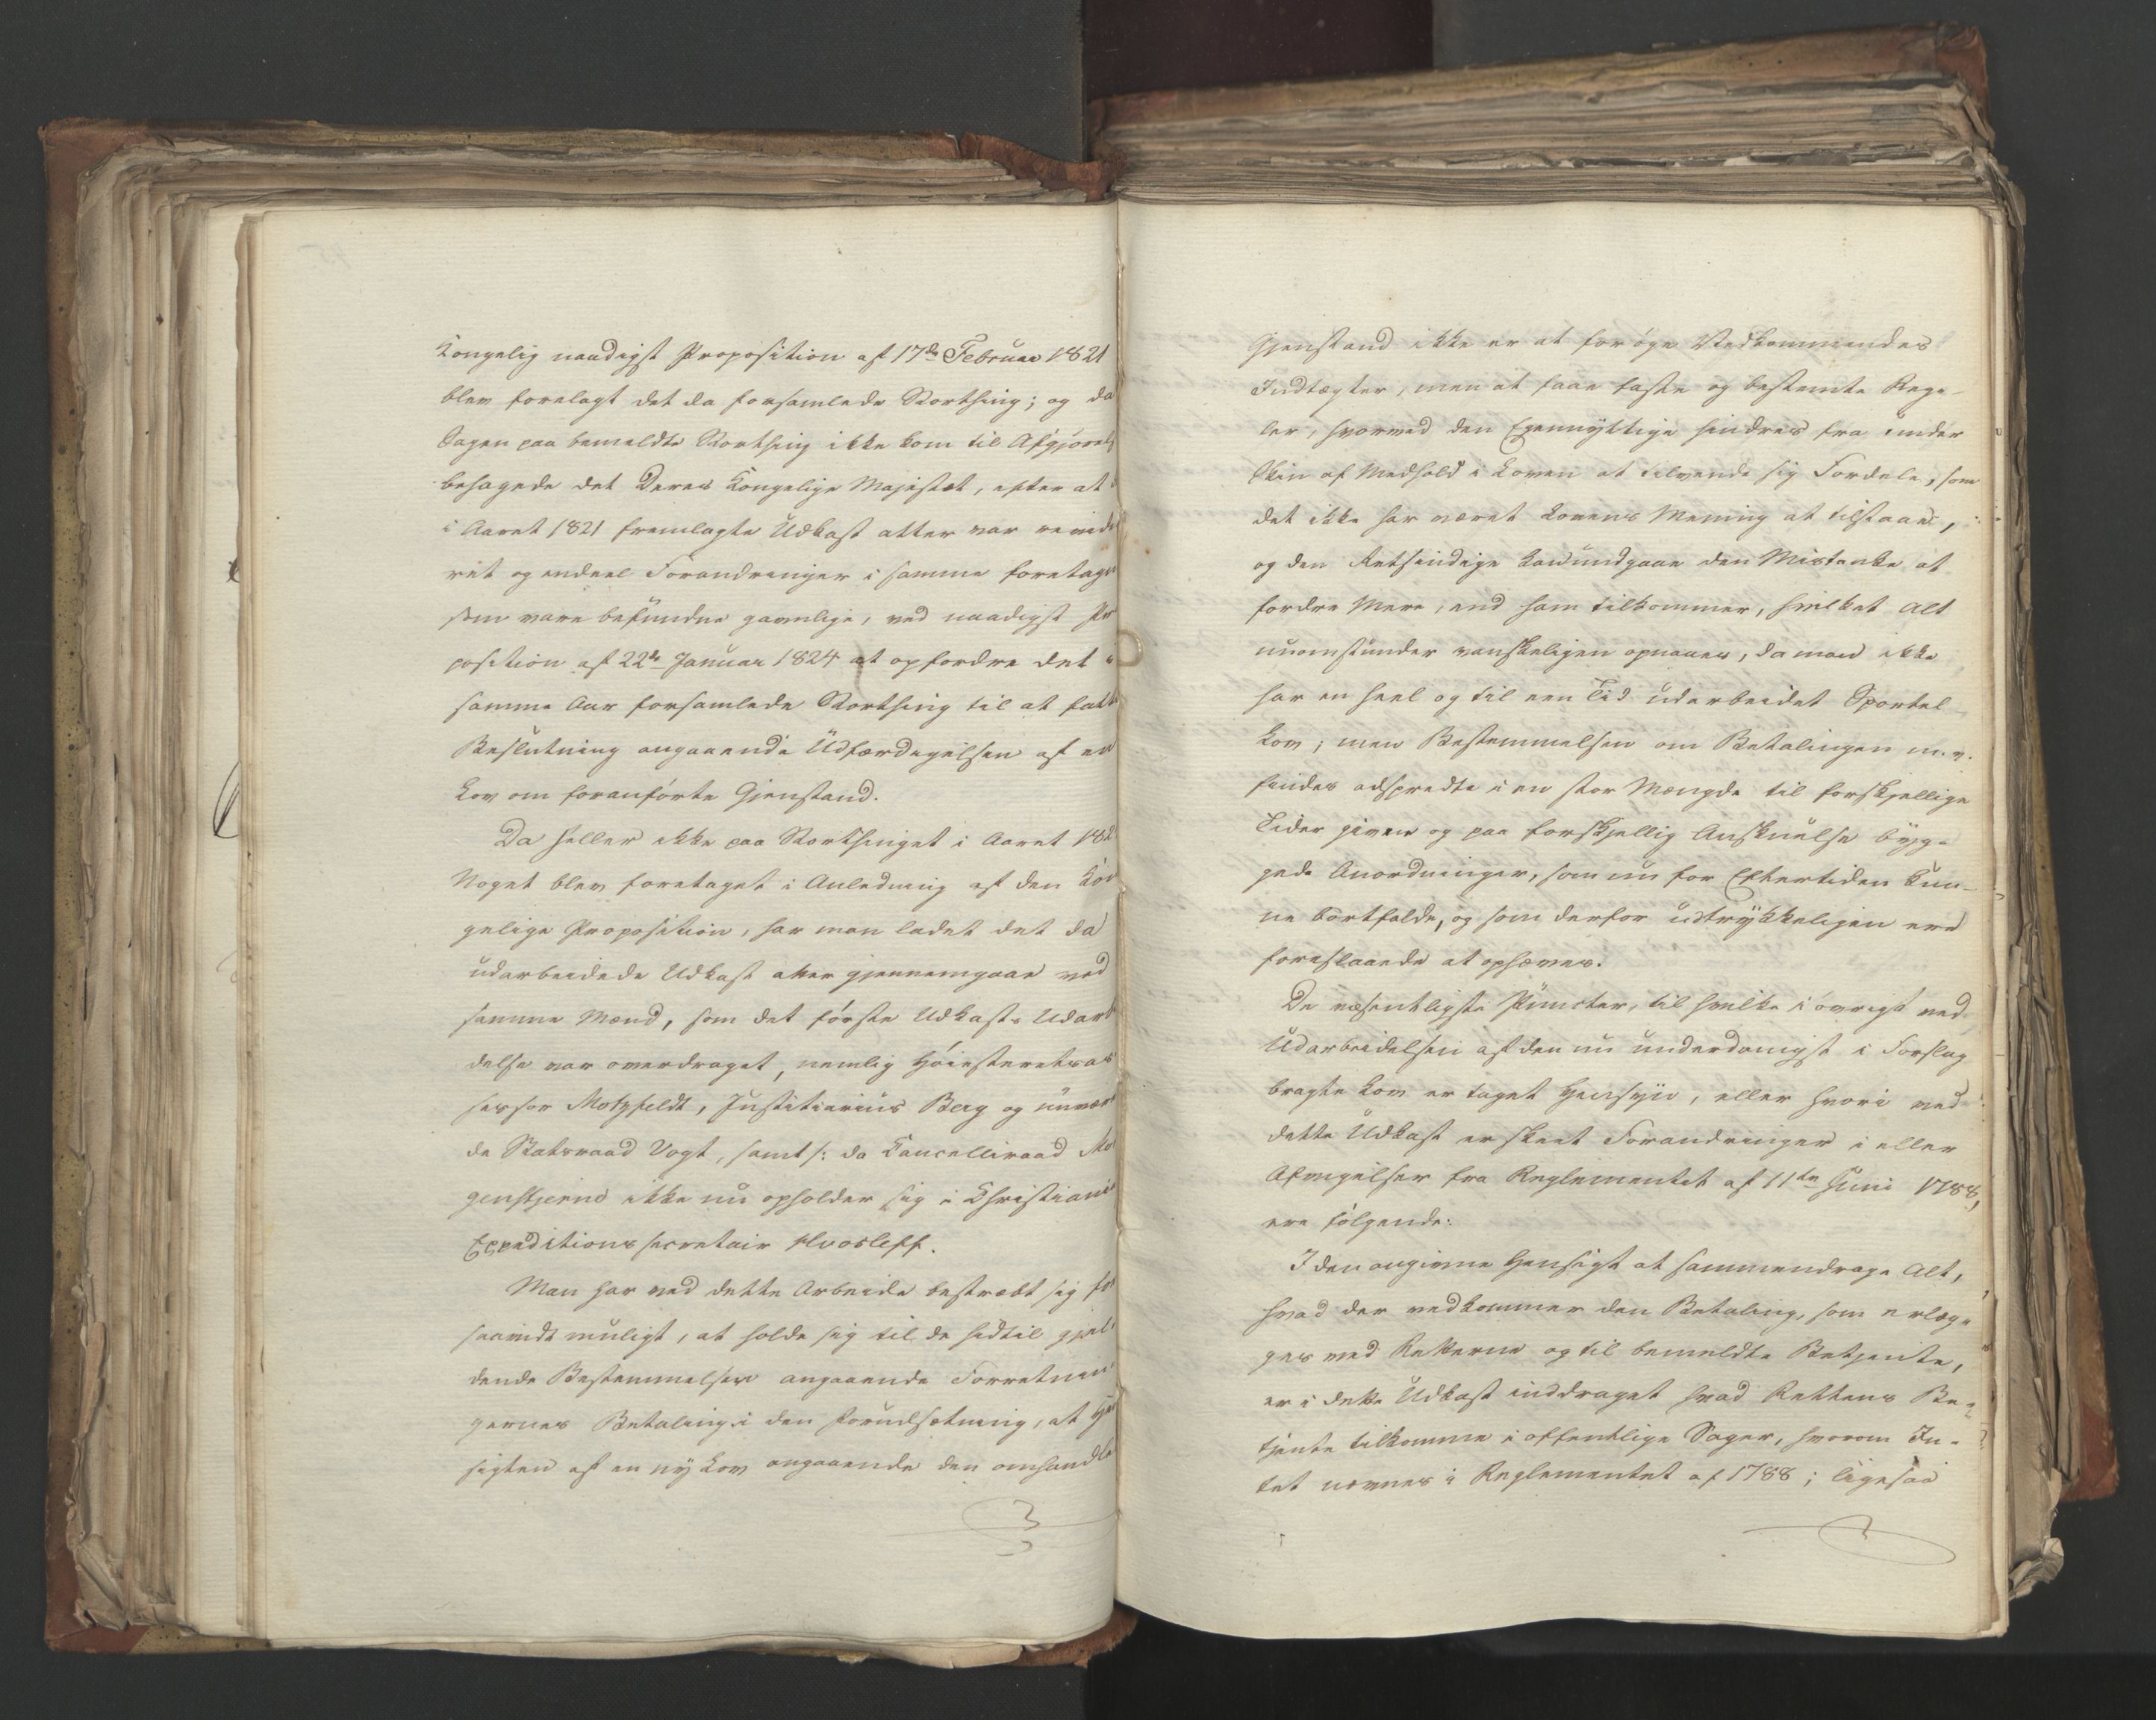 Kongelig naadigst Proposition af 17de Februar 1821
blev forelagt det da forsamlede Storthing; og da
Sagen paa bemeldte Storthing ikke kom til Afgjørels
behagede det Deres Kongelige Majestæt, efter at
i Aaret 1821 fremlagte Udkast atter var revide
ret og endeel Forandringer i samme foretagne
som vare befundne gavnlige, ved naadigst Pro
position af 22de Januar 1824 at opfordre det i
samme Aar forsamlede Storthing til at fatte
Beslutning angaaende Udfærdigelsen af en
Lov om foranførte Gjenstand.
Da heller ikke paa Storthinget i Aaret 182
Noget blev foretaget i Anledning af den Kon
gelige Proposition, har man ladet det da
udarbeidede Udkast atter gjennemgaae ved
samme Mænd, som det første Udkasts Udarb
delse var overdraget, nemlig Høiesteretsas
sessor Motzfeldt, Justitiarius Berg og nuvær
de Statsraad Vogt, samt /: da Cancelliraad Mo
genstjerne ikke nu opholder sig i Christiania
Expeditionssecretair Hvosleff.
Man har ved dette Arbeide bestræbt sig for
saavidt muligt, at holde sig til de hidtil gjel
dende Bestemmelser angaaende Forretnin
gernes Betaling i den Forudsætning, at Hen
sigten af en ny Lov angaaende den omhandle
Gjenstand ikke er at forøge Vedkommendes
Indtægter, men at faae faste og bestemte Reg-
ler, hvorved den Egennyttige hindres fra under
Skin af Medhold i Loven at tilvende sig Fordele, som
det ikke har været Lovens Mening at tilstaae,
og den Retsindige kan undgaae den Mistanke at
fordre Mere, end ham tilkommer, hvilket Alt
nuomstunder vanskeligen opnaaes, da man ikke
har en heel og til een Tid udarbeidet Sportel
Lov; men Bestemmelser om Betalingen m.v.
findes adspredte i en stor Mængde til forskjellige
Tider givne og paa forskjellig Anskuelse byg-
gede Anordninger, som nu for Eftertiden kun-
ne bortfalde, og som derfor udtrykkeligen ere
foreslaaede at ophæves.
De væsentligste Puncter, til hvilke i øvrigt ved
Udarbeidelsen af den nu underdanigst i Forslag
bragte Lov er taget Hensyn, eller hvori ved
dette Udkast er skeet Forandringer i eller
Afvigelser fra Reglementet af 11te Juni 1788,
ere følgende:
I den angivne Hensigt at sammendrage Alt,
hvad der vedkommer den Betaling, som erlæg-
ges ved Retterne og til bemeldte Betjente,
er i dette Udkast inddraget hvad Rettens Be-
tjente tilkomme i offentlige Sager, hvorom In-
tet nævnes i Reglementet af 1788; ligesaa